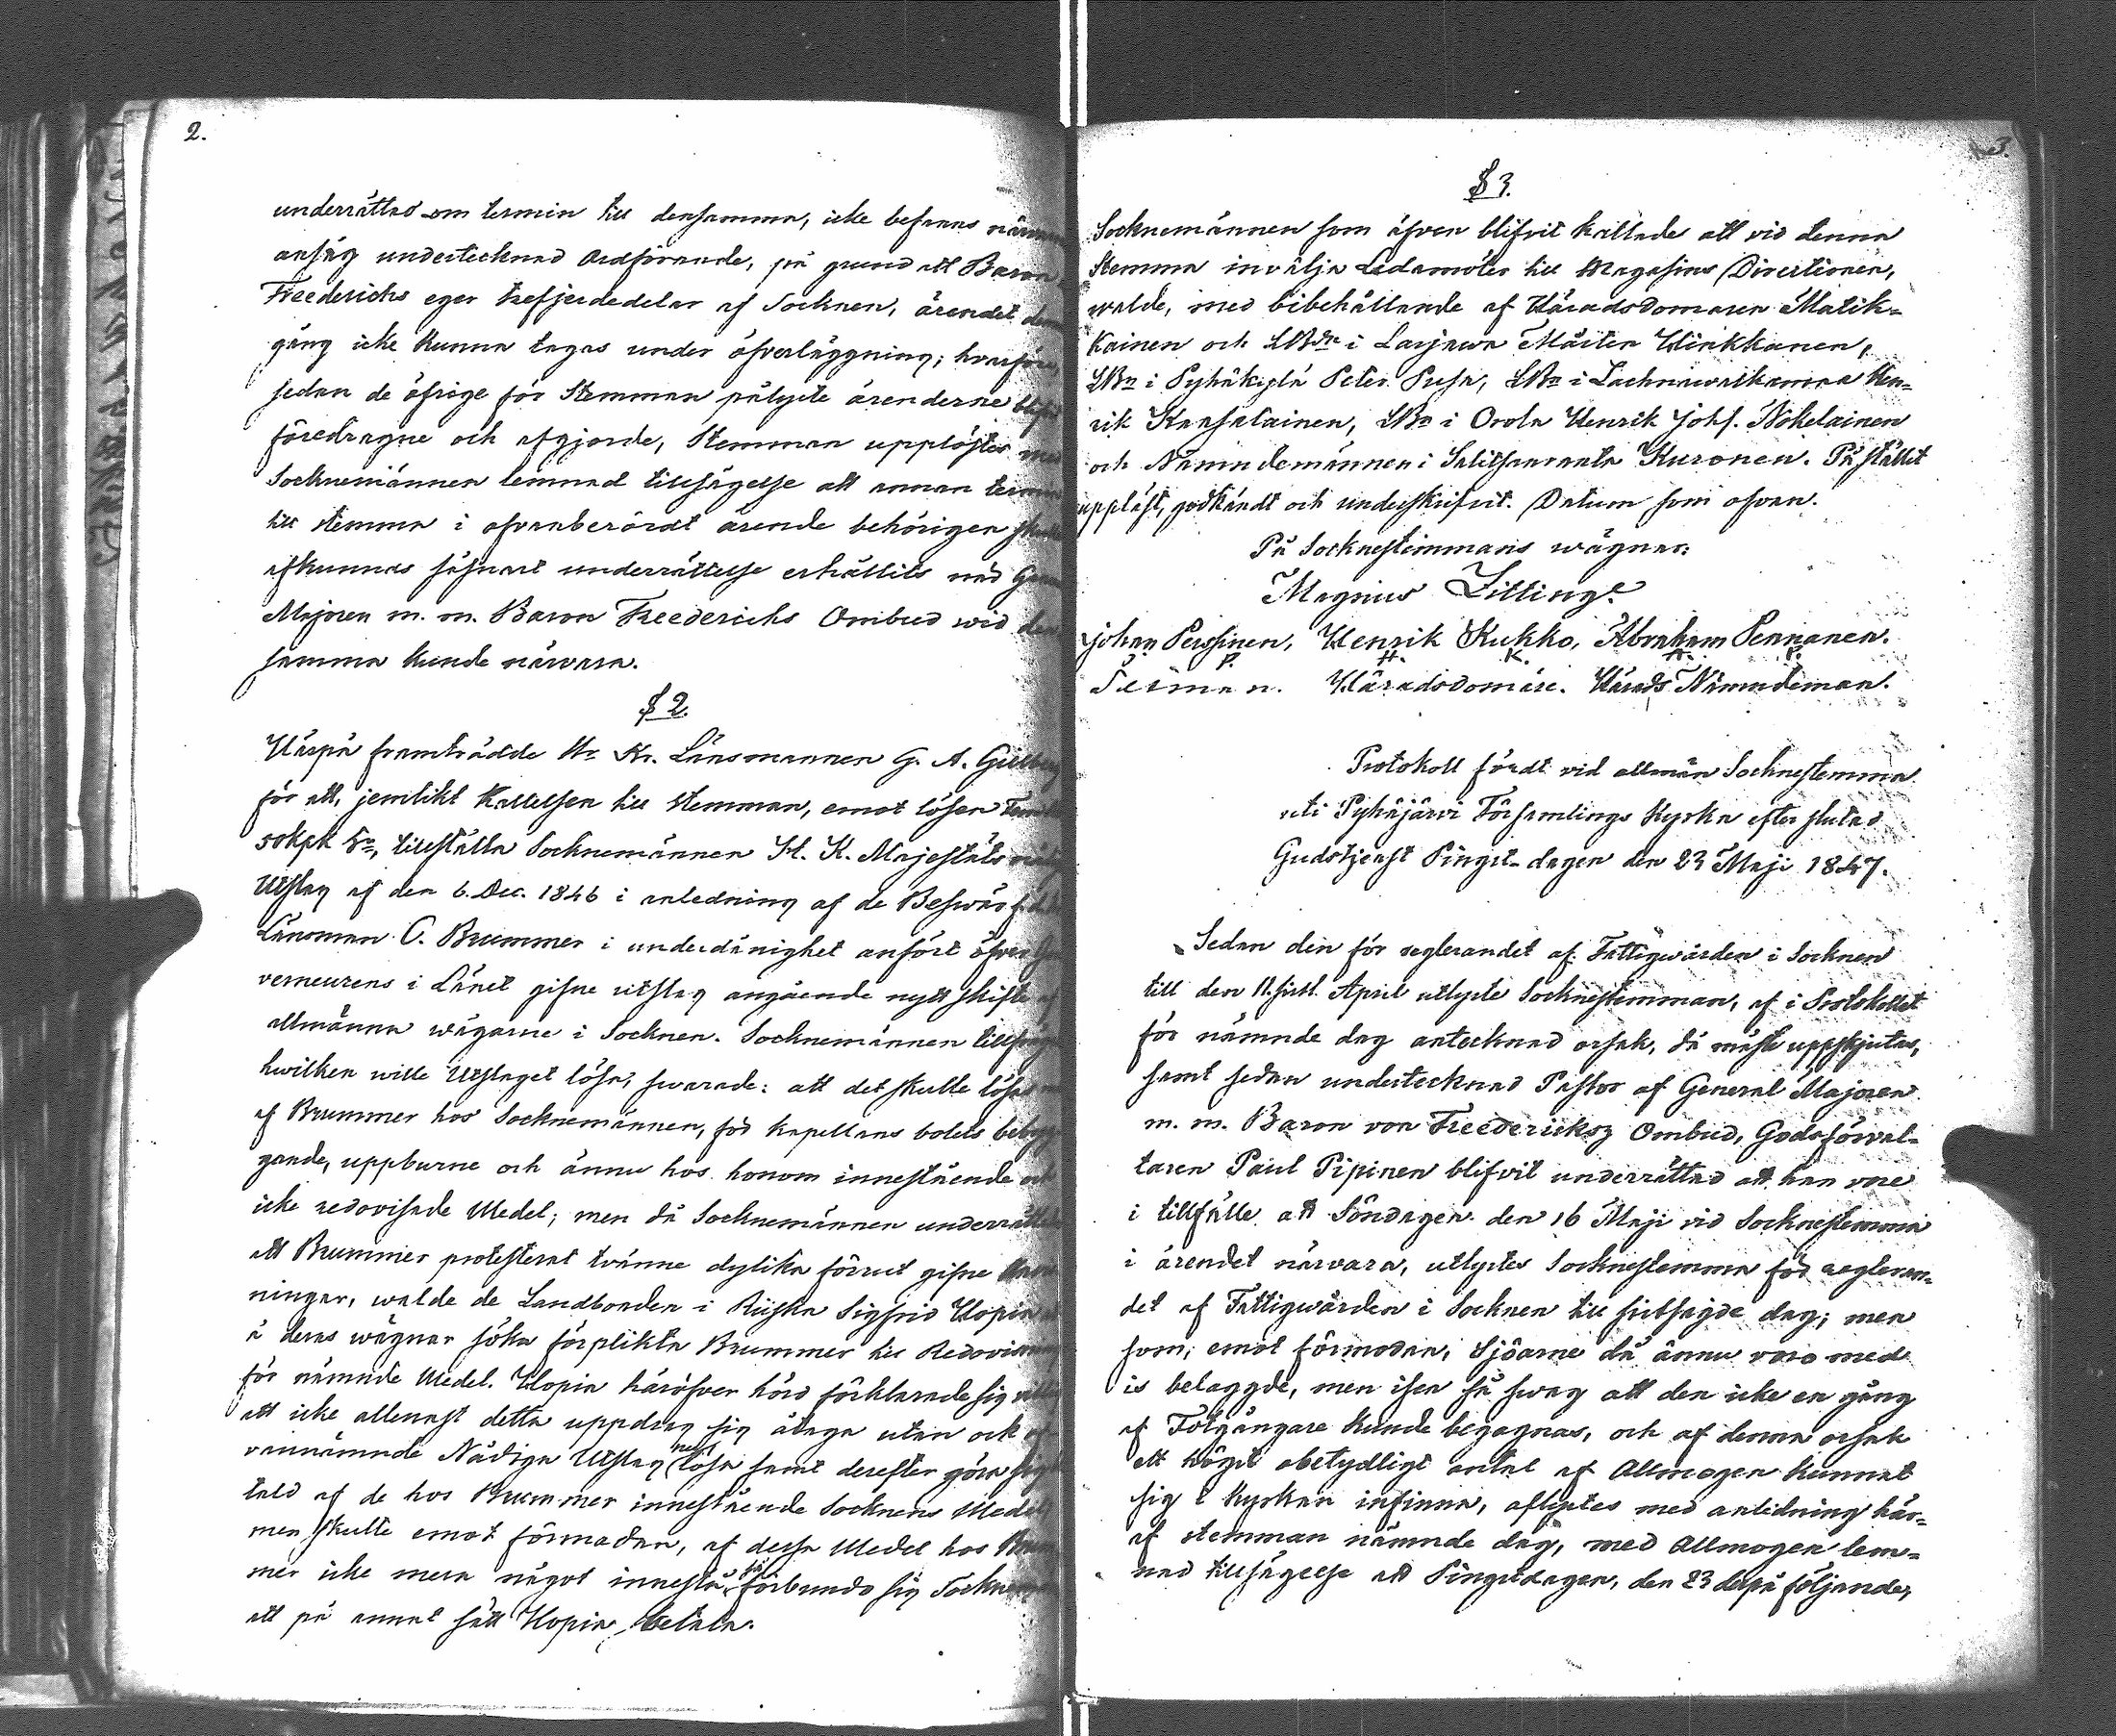 2.
underrättad om termin till densamma, icke befanns
ansåg undertecknad Ordförande, på grund att Baron
Freedericks eger trefjerdedelar af Socknen, ärendet
gång icke kunna tagas under öfverläggning; hvarföre,
sedan de öfrige för Stemman pålyste ärenderne
föredragne och afgjorde, Stemman upplöstes med
Socknemännen lemnad tillsägelse att annan termin
till stemma i ofvanberördt ärende behörigen
afkunnas såsnart underrättelse erhållits när
Majoren m. m. Baron Freedericks Ombud wid den
samma kunde närvara.
§ 2.
Härpå framträdde Hr Kr. Länsmannen G. A.
för att, jemlikt Kallelsen till Stemman, emot lösen
50 kpk Sr, tillställa Socknemännen H. K. Majestäts
Utslag af den 6. Dec. 1846 i anledning af de Beswär
Länsman C. Brummer i underdånighet anfört öfver
verneurens i Länet gifne utslag angående nytt skifte af
allmänna wägarne i Socknen. Socknemännen
hwilken wille Utslaget lösa, swarade: att det skulle lösas
af Brummer hos Socknemännen, för kapellans bolets
gande, uppburne och ännu hos honom innestående och
icke redovisade Medel; men då Socknemännen
att Brummer protesterat tvänne dylika förrut gifne
ningar, walde de Landbonden i Riiska Sigfrid Hopia
å deras wägnar söka förplikta Brummer till
för nämnde Medel. Hopia häröfver hörd förklarade sig
att icke allenast detta uppdrag sig åtaga utan ock
vannämnde Nådiga Utslag nu lösa samt derefter göra sig
tald af de hos Brummer innestående Socknens Medel
men skulle emot förmodan, af dessa Medel hos
mer icke mera något innestå, så förbundo sig
att på annat sätt Hopia betala.
3.
§ 3.
Socknemännen som äfven blifvit kallade att vid denna
Stemma invälja Ledamöter till Magasins Directionen,
walde, med bibehållande af Häradsdomaren Matik-
kainen och LBdn i Larjawa Mårten Hinkkanen,
LBn i Pyhäkylä Peter Pusa, LBn i Hen-
rik Kansalainen, LBn i Orola Henrik Johs. Nokelainen
och Nämndemännen i Salitsanranta Kuronen. På stället
uppläst, godkändt och underskrifvit. Datum som ofvan.
På Sockne­stemmans wägnar:
Magnus Litting
Johan Perssinen, Henrik Kukko, Abraham Pennanen.
P. H. K. A. P.
Häradsdomare. Härads Nämndeman.
Protokoll fördt vid allmän Socknestemma
uti Pyhäjärvi Församlings Kyrka efter slutad
Gudstjenst Pingst-dagen den 23 Maji 1847.
Sedan den för reglerandet af Fattigwården i Socknen
till den 11. sistl. April utlyste Socknestemman, af i Protokollet
för nämnde dag antecknad orsak, då måste uppskjutas,
samt sedan undertecknad Pastor af General Majoren
m. m. Baron von Freedericksz Ombud, Godsförval-
taren Paul Pipinen blifvit underrättad att han vore
i tillfälle att Söndagen den 16 Maji vid Socknestemma
i ärendet närvara, utlystes Socknestemma för regleran-
det af Fattigwården i Socknen till sistsagde dag; men
som, emot förmodan, Sjöarne då ännu voro med
is belaggde, men isen så swag att den icke en gång
af Fotgängare kunde begagnas, och af denna orsak
ett högst obetydligt antal af Allmogen kunnat
sig i Kyrkan infinna, aflystes med anledning här-
af stemman nämnde dag, med Allmogen lem-
nad tillsägelse att Pingstdagen, den 23 derpå följande,